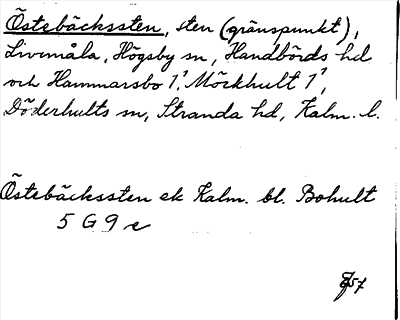 Östebäckssten, sten (gränspunkt),
Livemåla, Högsby sn, Handbörds hd
och Hammarsbo 1¹, Möckhult 1¹,
Döderhults sn, Stranda hd, Kalm. l.
Östebäckssten ek Kalm. bl. Bohult
5 G 9 e